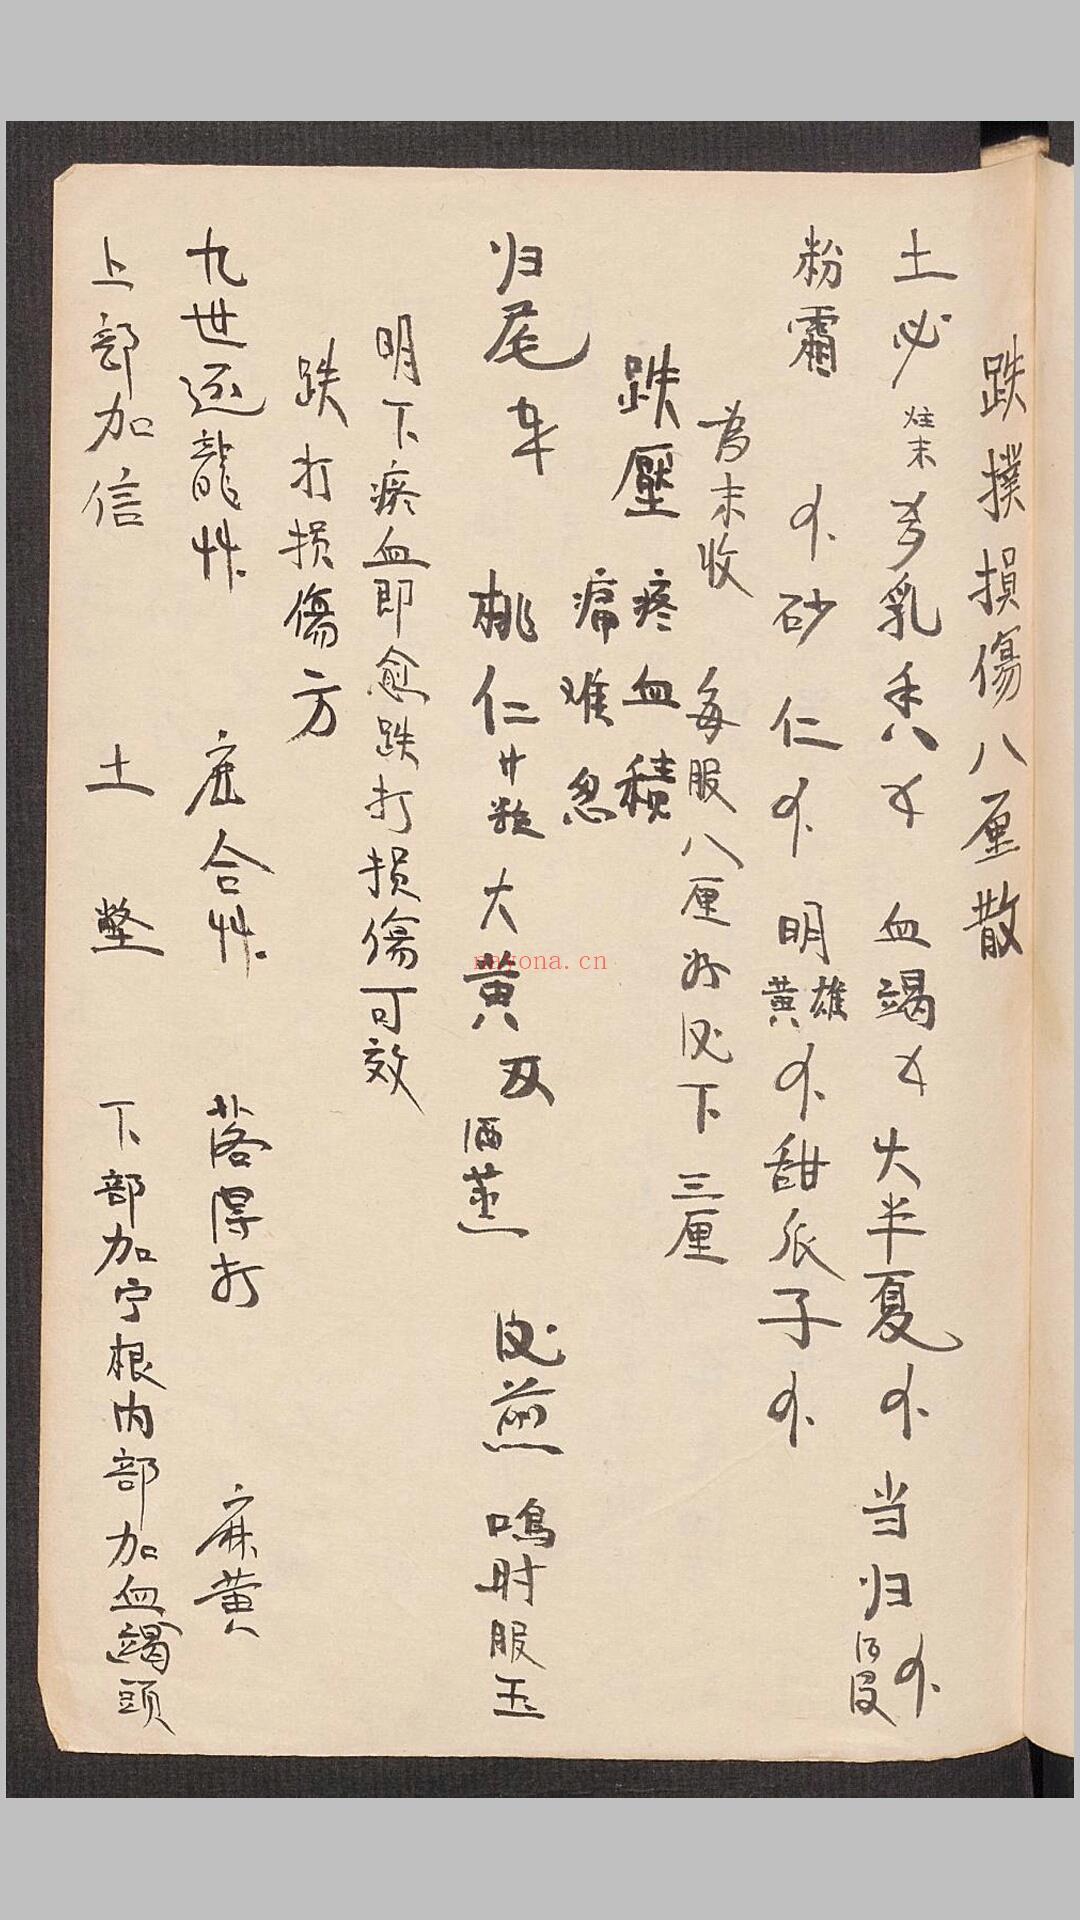 跌撲損傷八厘散
土必 炷末 乳香 血竭 大半夏 当归 酒浸
粉霜 砂仁 明雄黄 甜瓜子
為末收 每服八厘 好酒下 三厘
跌壓 疼血積 痛难忍
归尾 桃仁廿粒 大黄 酒蒸 酒煎 鳴时服玉
明下瘀血即愈跌打損傷可效
跌打損傷方
九世还龍艸 鹿含艸 落得打 麻黄
上部加信 土鳖 下部加宁根内部加血竭頭
nayona.cn